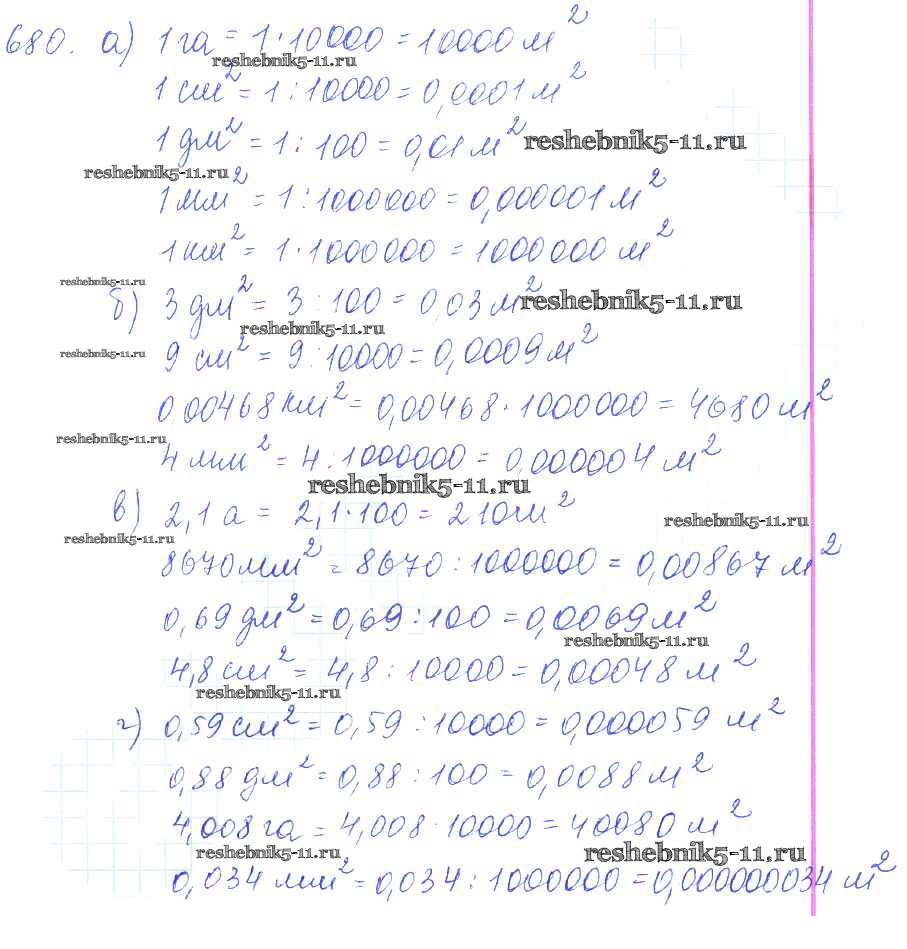 680. а) 1 га = 1 · 10000 = 10000 м²
reshebnik5-11.ru
1 см² = 1 : 10000 = 0,0001 м²
1 дм² = 1 : 100 = 0,01 м² reshebnik5-11.ru
reshebnik5-11.ru
1 мм² = 1 : 1000000 = 0,000001 м²
1 км² = 1 · 1000000 = 1000000 м²
reshebnik5-11.ru
б) 3 дм² = 3 : 100 = 0,03 м² reshebnik5-11.ru
reshebnik5-11.ru
reshebnik5-11.ru 9 см² = 9 : 10000 = 0,0009 м²
0,00468 км² = 0,00468 · 1000000 = 4680 м²
reshebnik5-11.ru
4 мм² = 4 : 1000000 = 0,000004 м²
reshebnik5-11.ru
в) 2,1 а = 2,1 · 100 = 210 м²
reshebnik5-11.ru
reshebnik5-11.ru
8670 мм² = 8670 : 1000000 = 0,00867 м²
0,69 дм² = 0,69 : 100 = 0,0069 м²
reshebnik5-11.ru
4,8 см² = 4,8 : 10000 = 0,00048 м²
reshebnik5-11.ru
г) 0,59 см² = 0,59 : 10000 = 0,000059 м²
0,88 дм² = 0,88 : 100 = 0,0088 м²
4,008 га = 4,008 · 10000 = 40080 м²
reshebnik5-11.ru reshebnik5-11.ru
0,034 мм² = 0,034 : 1000000 = 0,000000034 м²